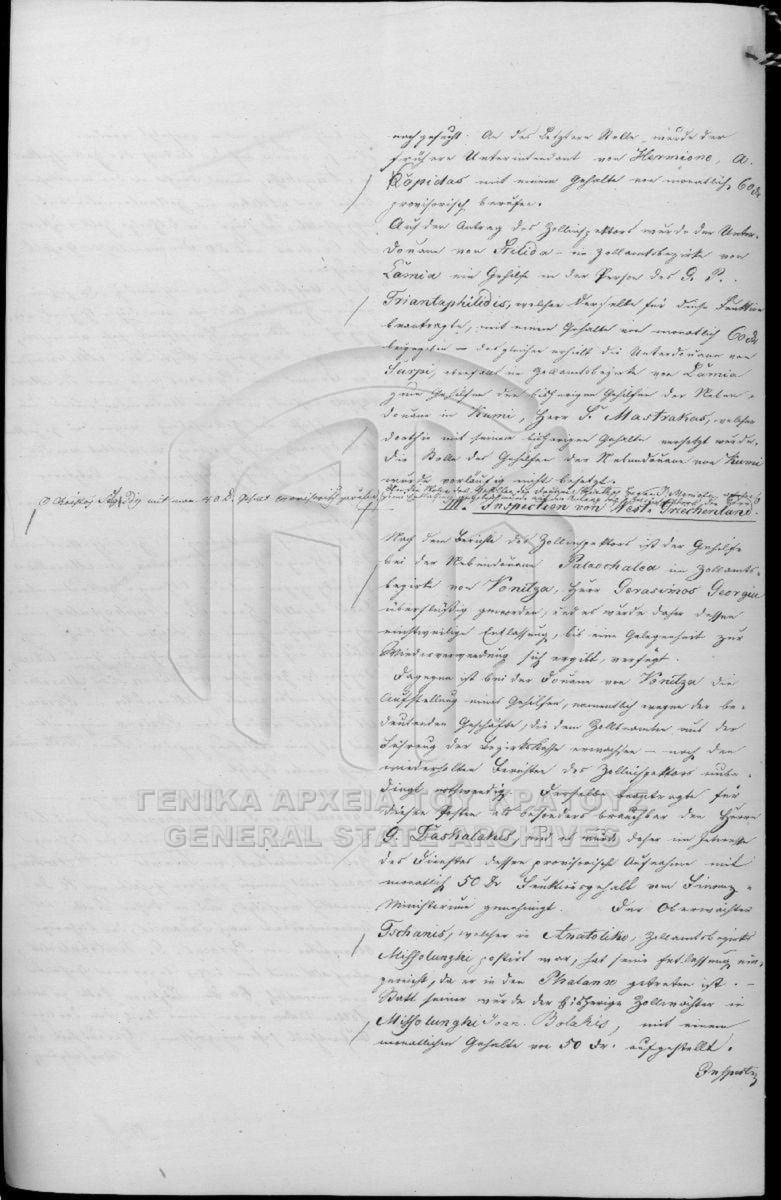 nachgesucht. An des Letztern Stelle wurde der
frühere Unterintendant von Hermione, A.
Kopidas mit einem Gehalte von monatlich 60 Dr
provisorisch berufen.
Auf den Antrag des Zollinspektors wurde der Unter-
douane von Stilida – im Zollamtsbezirke von
Lamia ein Gehilfe in der Person des G. P.
Triantaphilidis, welchen derselbe für diese Funktion
beantragte, mit einem Gehalte von monatlich 60 Dr
beigegeben – desgleichen erhält die Unterdouane von
Surpi, ebenfalls im Zollamtsbezirke von Lamia
zum Gehilfen den bisherigen Gehilfen der Neben-
douane in Kumi, Herr S. Mastrakas, welcher
dorthin mit seinem bisherigen Gehalte versetzt wurde.
Die Stelle des Gehilfen der Nebendouane von Kumi
wurde vorläufig nicht besetzt.
mit mon. 40 Dr. Gehalt provisorisch
III. Inspection von West-Griechenland.
Nach dem Berichte des Zollinspektors ist der Gehilfe
bei der Nebendouane Palaochalea im Zollamts-
bezirke von Vonitza, Herr Gerasimos Georgiu
überflüßig geworden, und es wurde daher dessen
einstweilige Entlassung, bis eine Gelegenheit zur
Wiederverwendung sich ergibt, verfügt.
Dagegen ist bei der Douane von Vonitza die
Aufstellung eines Gehilfen, namentlich wegen der be-
deutenden Geschäfte, die dem Zollbeamten aus der
Führung der Bezirkskasse erwachsen – nach den
wiederholten Berichten des Zollinspektors unbe-
dingt nothwendig. Derselbe beantragte für
diesen Posten als besonders brauchbar den Herrn
G. Daskalakis, und es wurde daher im Interesse
des Dienstes dessen provisorische Aufnahme mit
monatlich 50 Dr Funktionsgehalt vom Finanz-
Ministerium genehmigt. Der Oberwächter
Tschanis, welcher in Anatoliko, Zollamtsbezirks
Missolunghi postirt war, hat seine Entlassung ein-
gereicht, da er in den Phalanx getreten ist. –
Statt seiner wurde der bisherige Zollwächter in
Missolunghi Joan. Bolakis, mit einem
monatlichen Gehalte von 50 Dr. aufgestellt.
ΓΕΝΙΚΑ ΑΡΧΕΙΑ ΤΟΥ ΚΡΑΤΟΥΣ
GENERAL STATE ARCHIVES